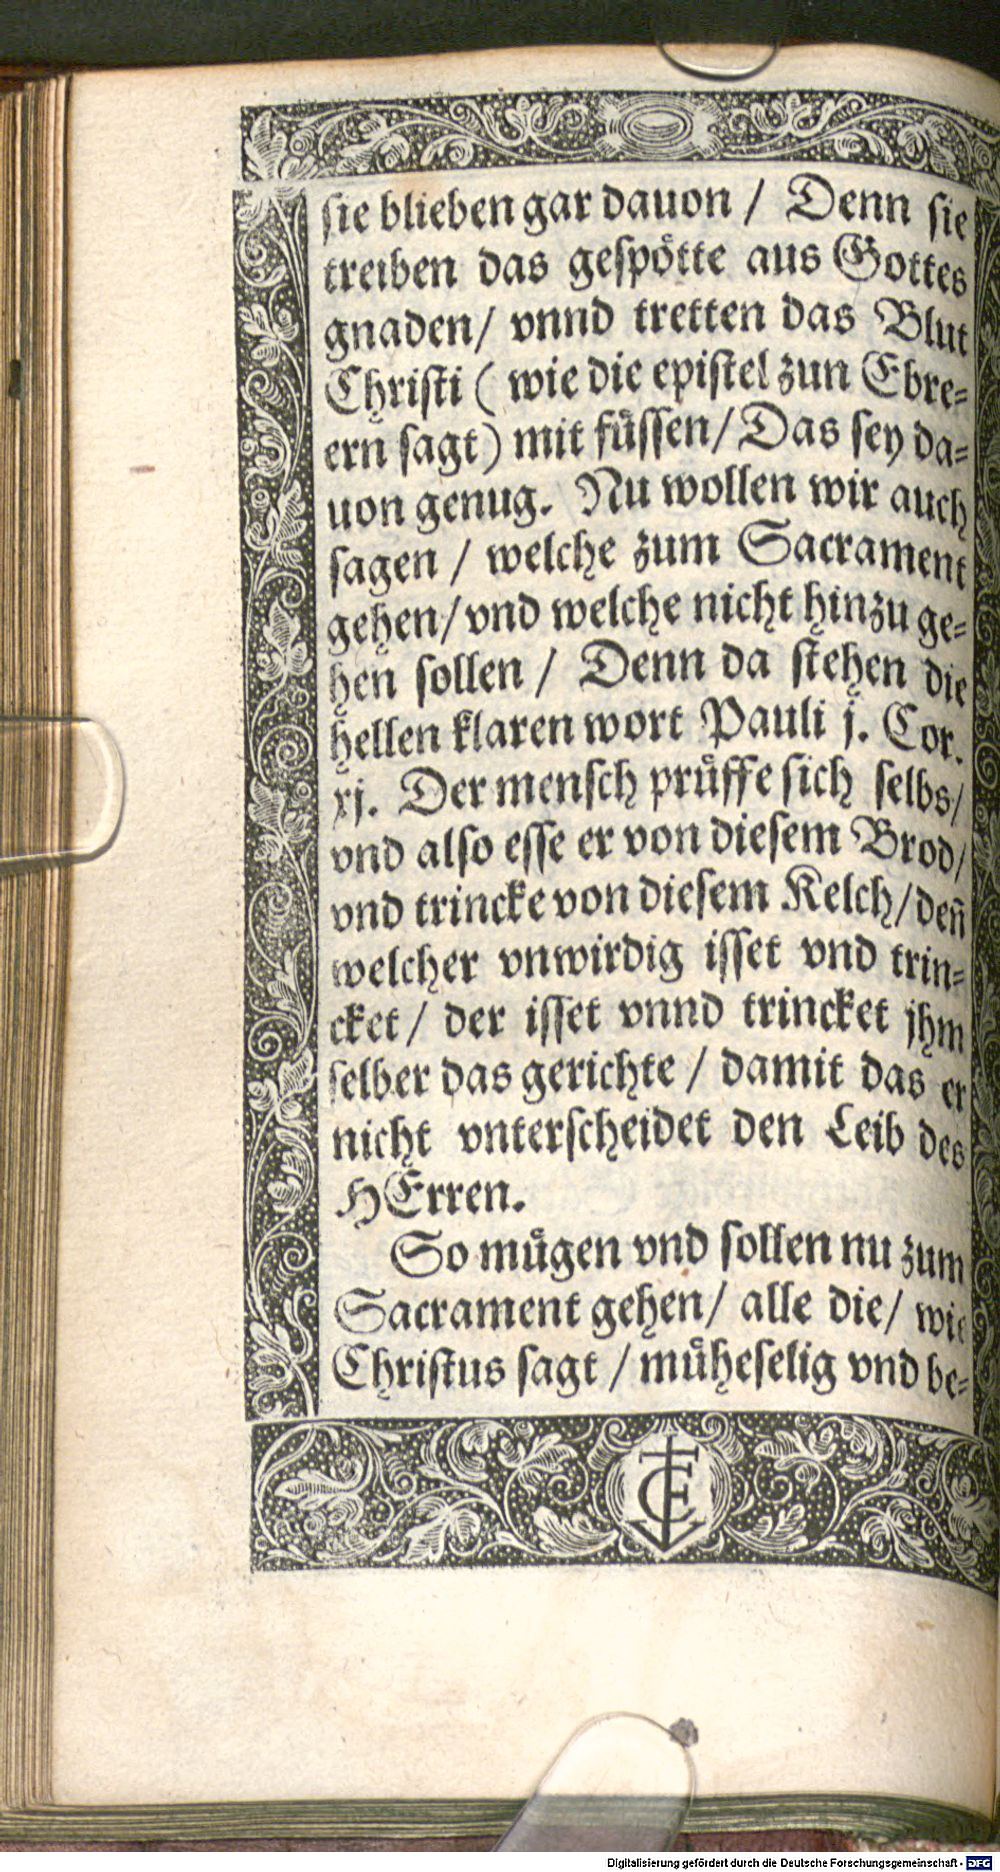 sie blieben gar dauon / Denn sie
treiben das gespötte aus Gottes
gnaden/ vnnd tretten das Blut
Christi ( wie die epistel zun Ebre=
ern sagt) mit füssen/ Das sey da=
uon genug. Nu wollen wir auch
sagen / welche zum Sacrament
gehen/ vnd welche nicht hinzu ge=
hen sollen / Denn da stehen die
hellen klaren wort Pauli j. Cor.
xj. Der mensch prüffe sich selbs/
vnd also esse er von diesem Brod/
vnd trincke von diesem Kelch/ deñ
welcher vnwirdig isset vnd trin=
cket/ der isset vnnd trincket jhm
selber das gerichte / damit das er
nicht vnterscheidet den Leib des
HErren.
So mügen vnd sollen nu zum
Sacrament gehen/ alle die/ wie
Christus sagt / müheselig vnd be=
Digitalisierung gefördert durch die Deutsche Forschungsgemeinschaft - DFG